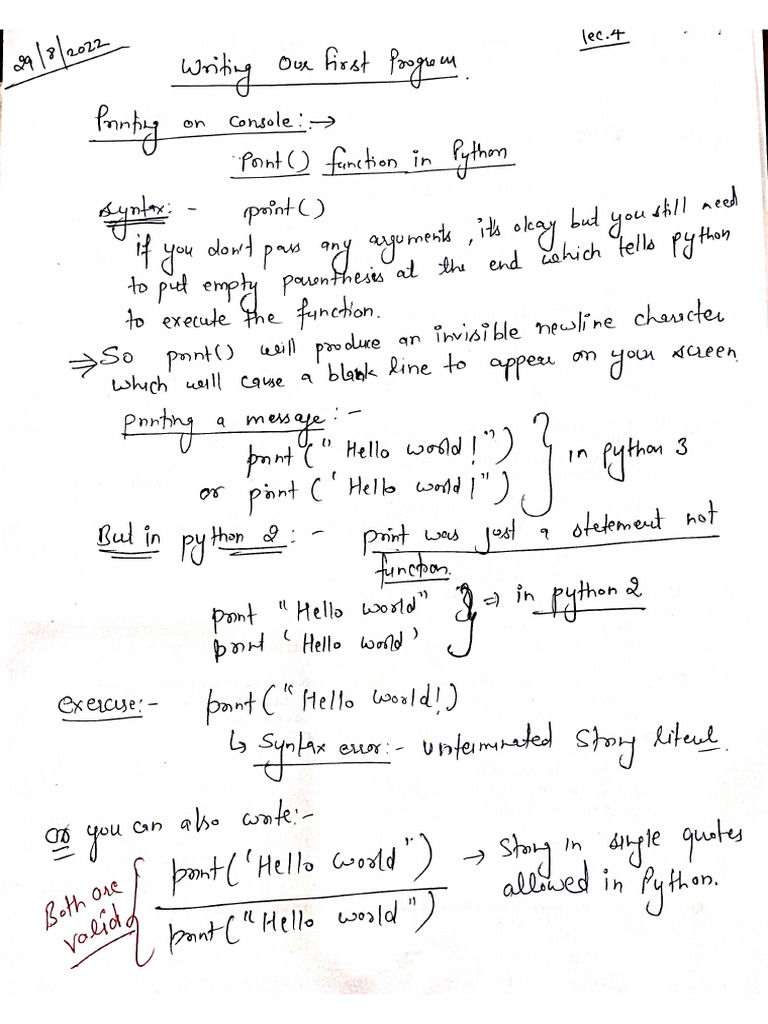 29/8/2022
lec.4
Writing Our first Program.
Printing on console:→
Print() function in Python
Syntax:- print()
if you don't pass any arguments, it's okay but you still need
to put empty parenthesis at the end which tells python
to execute the function.
⇒ So print() will produce an invisible newline character
which will cause a blank line to appear on your screen.
Printing a message:-
print("Hello world!")
or print('Hello world!")
} in python 3
But in python 2:- print was just a statement not
function.
print "Hello world"
print 'Hello world'
} ⇒ in python 2
exercise:- print("Hello World!)
↳ Syntax error:- unterminated String literal.
Or you can also write:-
Both are
valid
{ print('Hello world")
print("Hello world")
→ String in single quotes
allowed in Python.